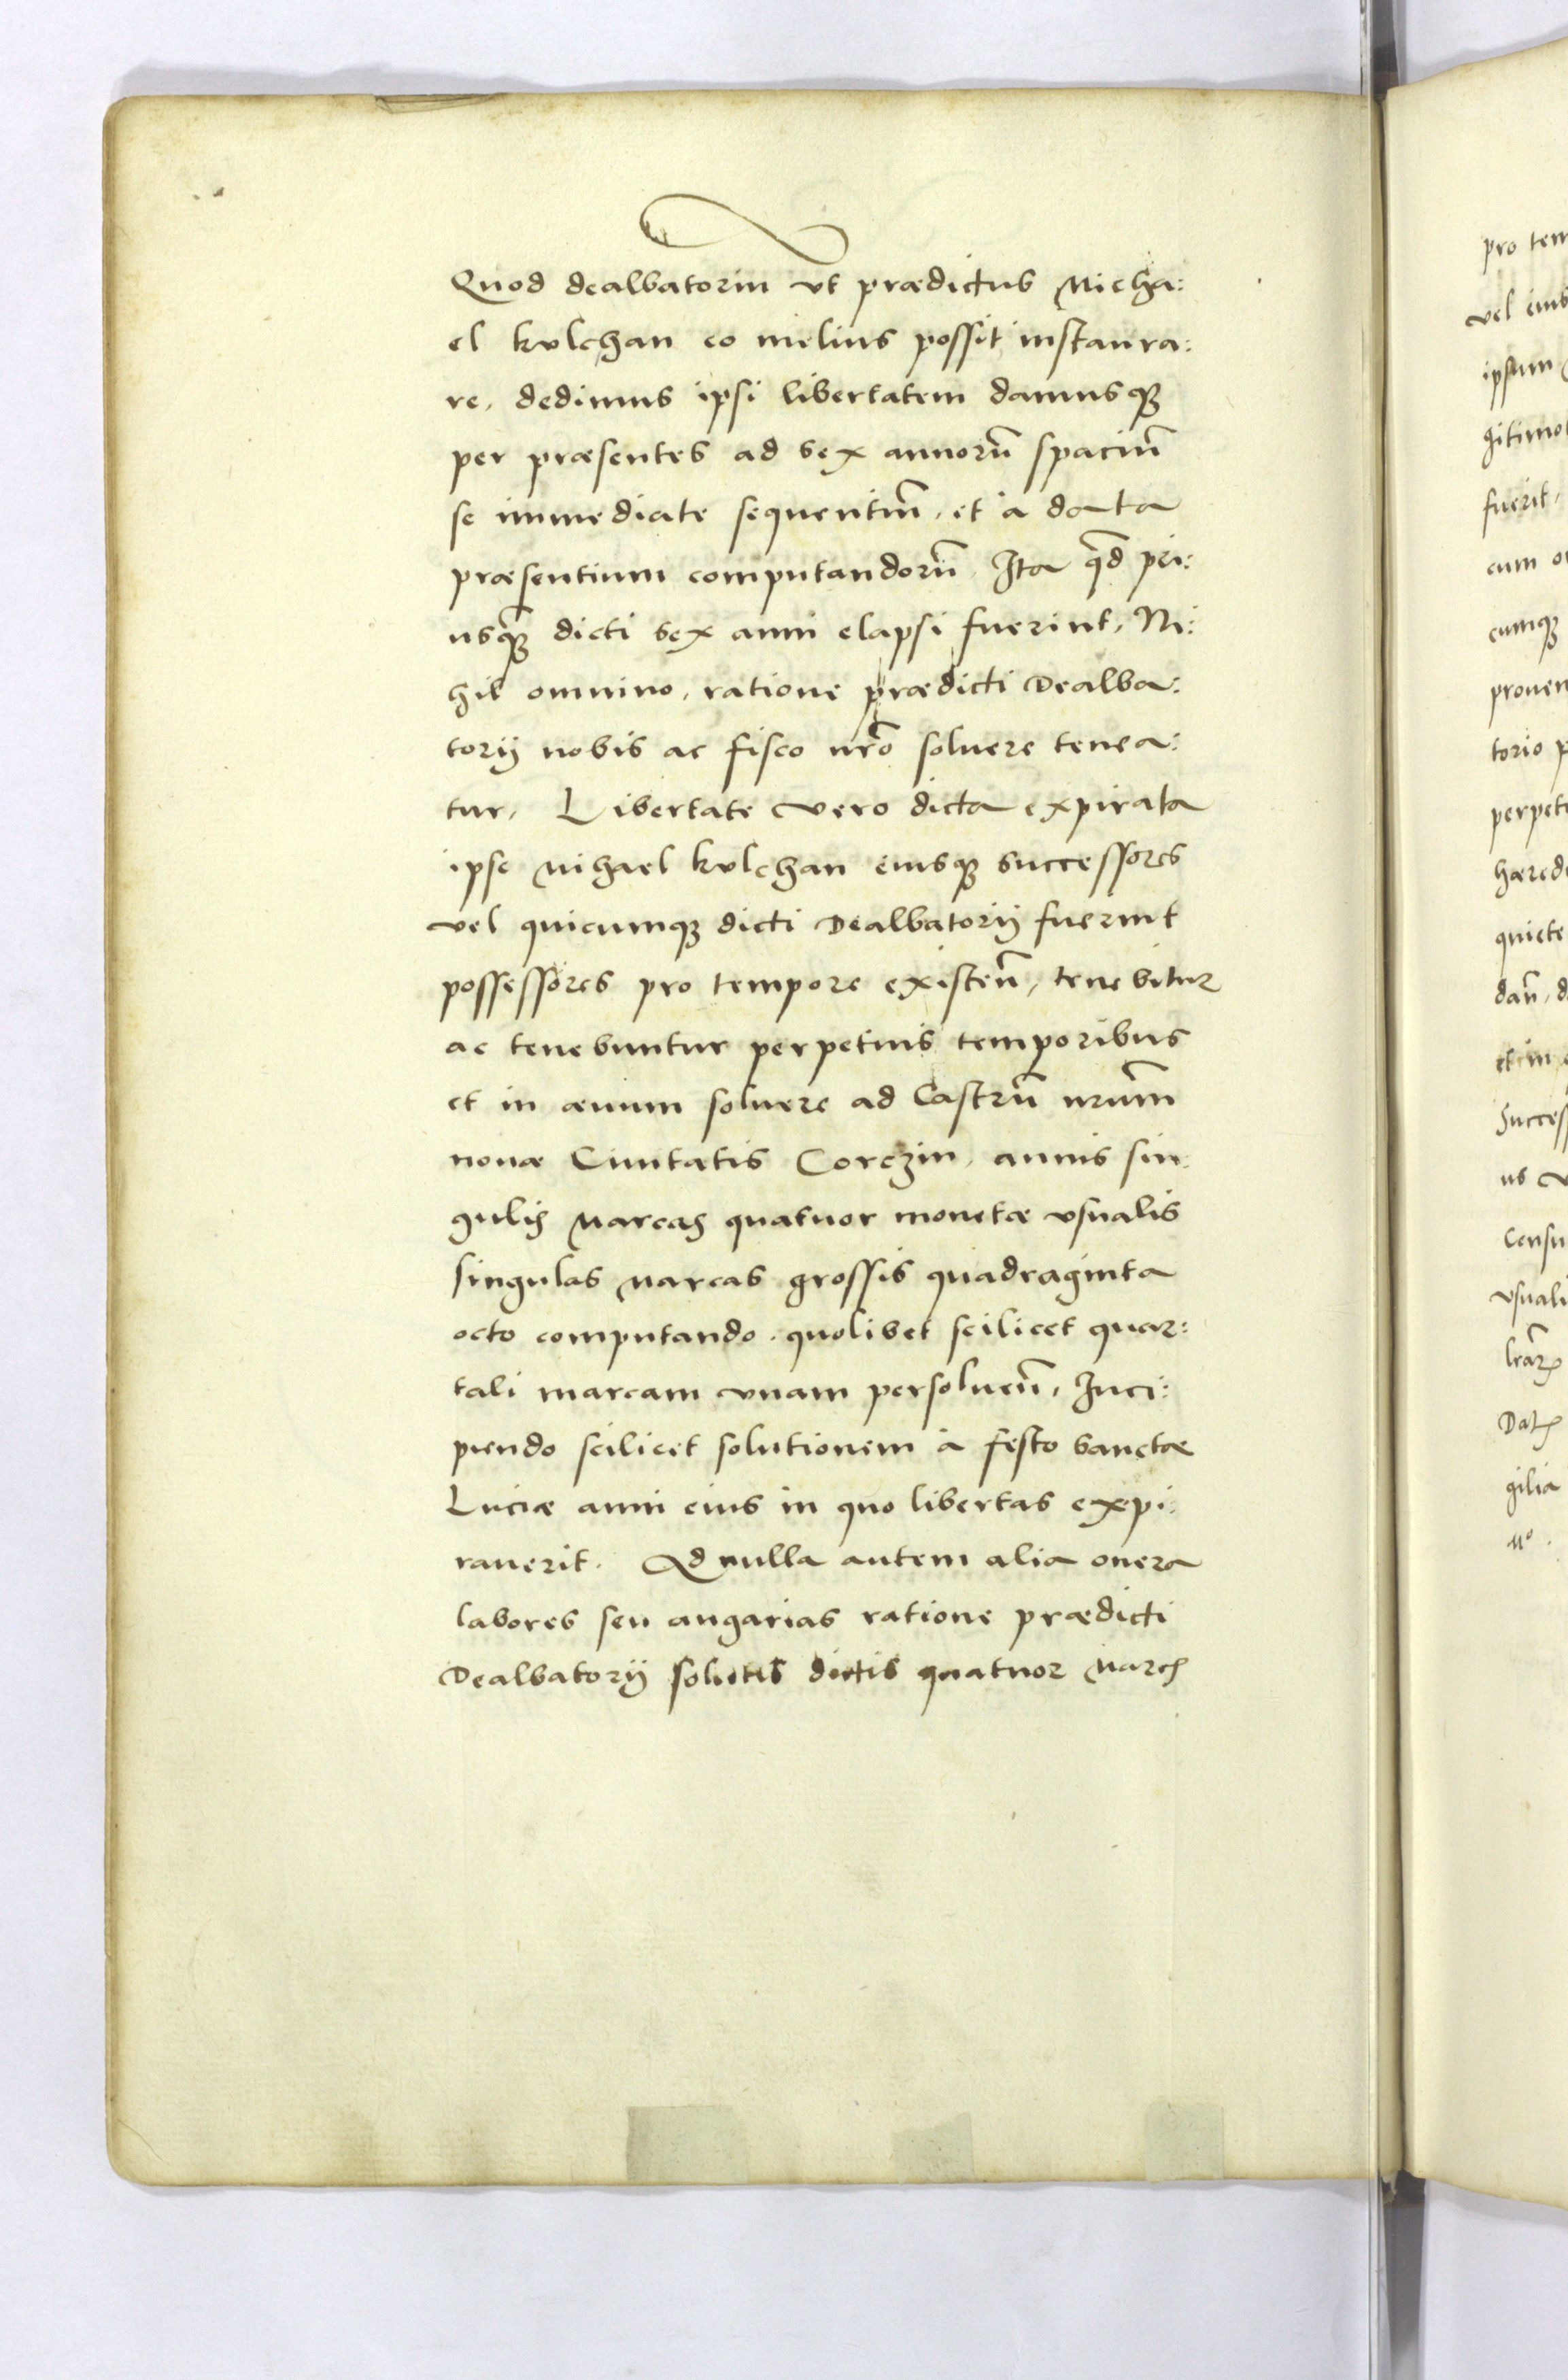 Quod dealbatoriū ut prædictus Micha:
el kulchan eo melius possit instaura:
re, dedimus ipsi libertatem damusqꝫ
per præsentes ad sex annorū spaciū
se immediate sequentiū, et à data
præsentium computandorū, Ita qd̄ pri:
usqꝫ dicti sex anni elapsi fuerint, Ni:
hil omnino, ratione prædicti Dealba:
torij nobis ac fisco nr̄o soluere tenea:
tur, Libertate vero dicta expirata
ipse Mihael kulchan eiusqꝫ successores
vel quicumqꝫ dicti Dealbatorij fuerint
possessores pro tempore existeñ, tenebitur
ac tenebuntur perpetuis temporibus
et in æuum soluere ad Castrū nrūm
nouæ Ciuitatis Corczin, annis sin:
gulis Marcas quatuor monetæ vsualis
singulas Marcas grossis quadraginta
octo computando. quolibet scilicet quar:
tali marcam vnam persolueñ, Inci:
piendo scilicet solutionem à festo Sanctæ
Luciæ anni eius in quo libertas expi:
rauerit. Ad nulla autem alia onera
labores seu angarias ratione prædicti
Dealbatorij solutis dictis quatuor Marcꝭ
pro tem
vel eius
ipsum
gitimo
fuerit,
cum o
cumqꝫ
prouen
torio p
perpet
hæred
quiete
dañ, d
et in
Success
us v
Censu
vsuali
gilia